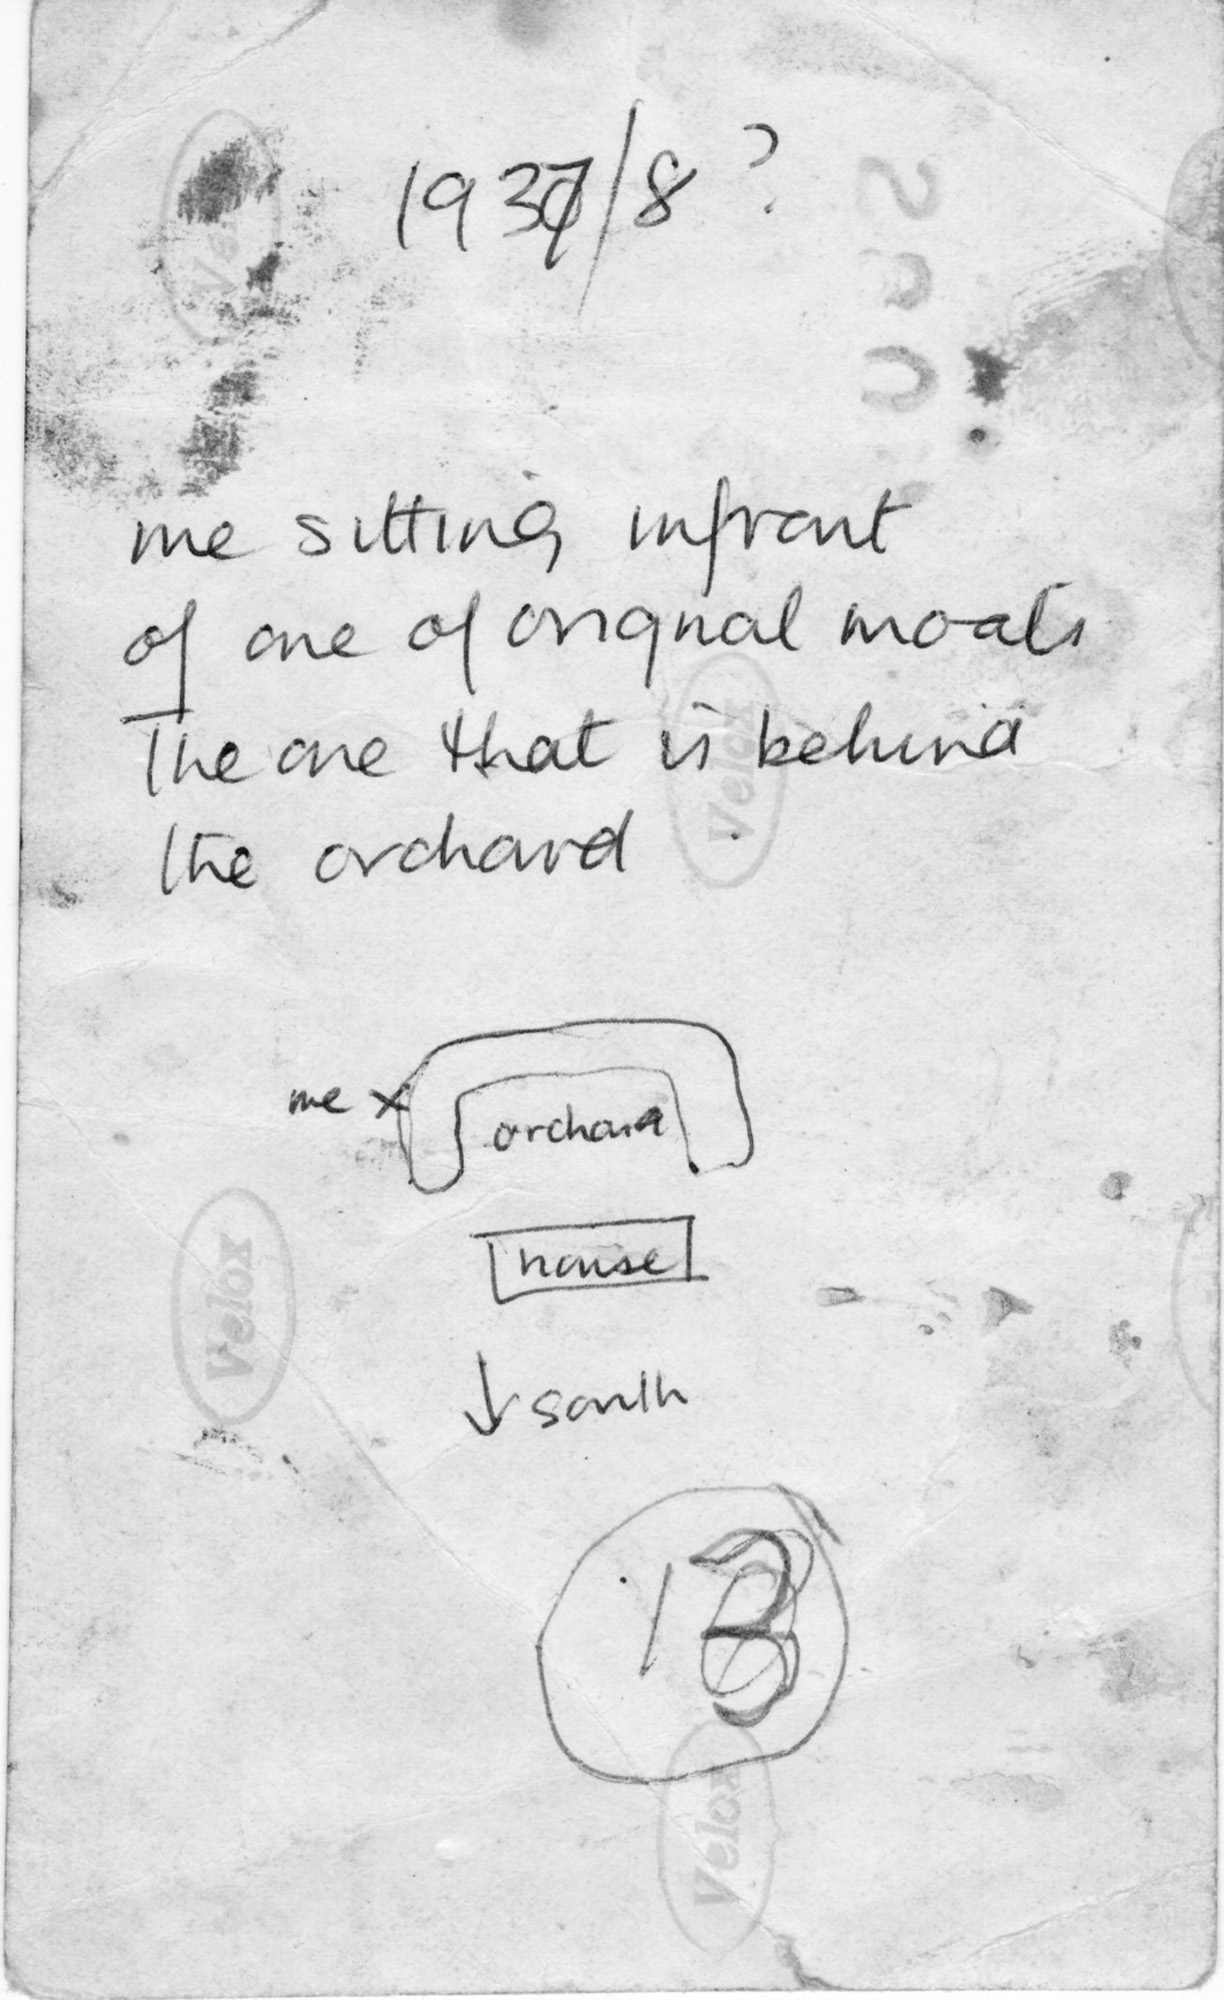 1937/8 ?
me sitting infront
of one of original moats
The one that is behind
the orchard
me x
orchard
house
↓ south
13
Velox
Velox
Velox
Velox